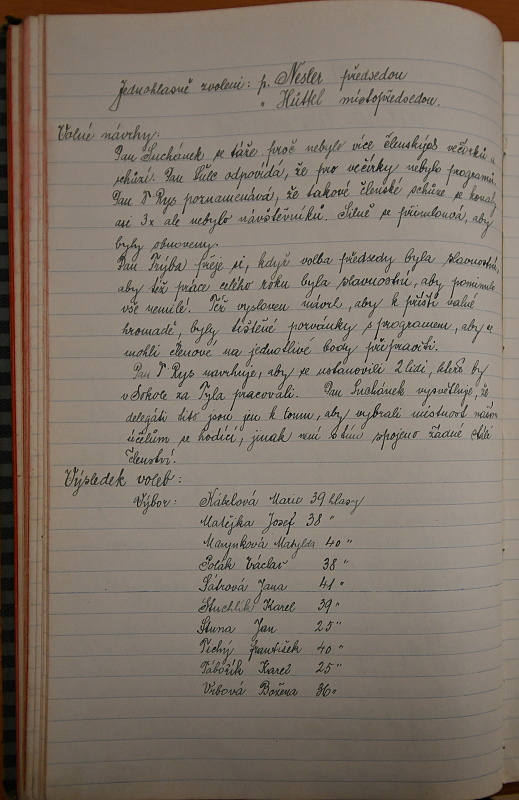 Jednohlasně zvoleni: p. Nesler předsedou
" Hüttel místopředsedou.
Volné návrhy:
Pan Suchánek se táže proč nebylo více členských večírků a
schůzí. Pan Šulc odpovídá, že pro večírky nebylo programu.
Pan V Rys poznamenává, že takové členské schůze se konaly
asi 3x ale nebylo návštěvníků. Silně se přimlouvá, aby
byly obnoveny.
Pan Trýba přeje si, když volba předsedy byla slavnostní,
aby též práce celého roku byla slavnostní, aby pominulo
vše nemilé. Též vysloven návrh, aby k příští valné
hromadě, byly tištěné pozvánky s programem, aby se
mohli členové na jednotlivé body připraviti.
Pan V Rys navrhuje, aby se ustanovili 2 lidi, kteří by
v Sokole za Tyla pracovali. Pan Suchánek vysvětluje, že
delegáti tito jsou jen k tomu, aby vybrali místnost našim
účelům se hodící, jinak není s tím spojeno žádné
členství.
Výsledek voleb:
Výbor: Kábelová Marie 39 hlasy
Matějka Josef 38 "
Marynková Matylda 40 "
Polák Václav 38 "
Šátrová Jana 41 "
Stuchlík Karel 39 "
Stuna Jan 25 "
Tichý František 40 "
Tábořík Karel 25 "
Vrbová Božena 36 "